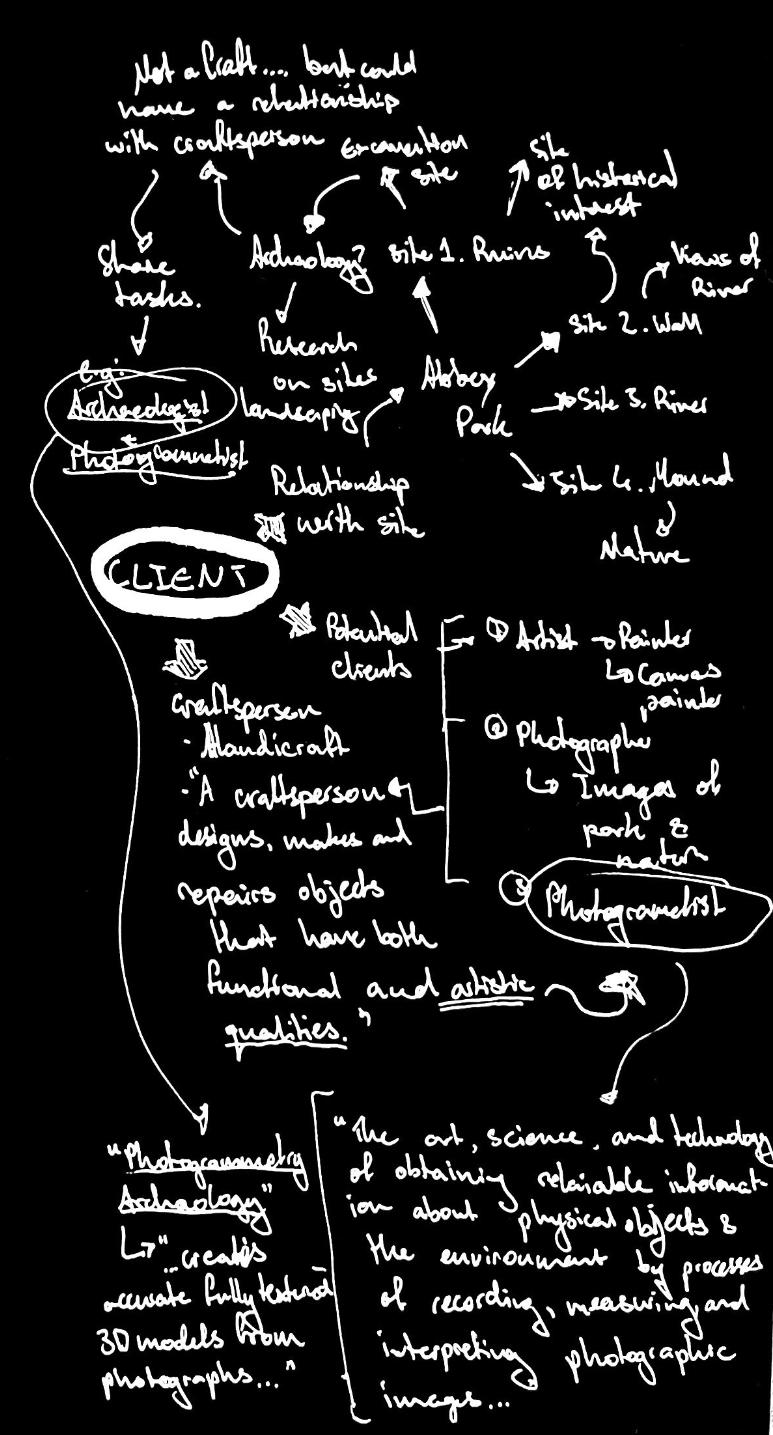 Not a Craft.... but could
have a relationship
with craftsperson
excavation
site
Site
of historical
interest
Share
tasks.
Archaeology?
Site 1. Ruins
Views of
River
Site 2. Wall
e.g:
Archaeologist
+
Photogrammetrist
Research
on sites
landscaping
Abbey
Park
Site 3. River
Relationship
with site
Site 4. Mound
Nature
CLIENT
Potential
clients
① Artist → Painter
↳ Canvas
painter
Craftsperson
· Handicraft
② Photographer
↳ Images of
park &
nature
·"A craftsperson
designs, makes and
repairs objects
that have both
functional and artistic
qualities."
③ Photogrametist
"Photogrammetry
Archaeology"
↳ "...creates
accurate fully textured
3D models from
photographs..."
"The art, science, and technology
of obtaining relaiable informat
ion about physical objects &
the environment by processes
of recording, measuring and
interpreting photographic
images...